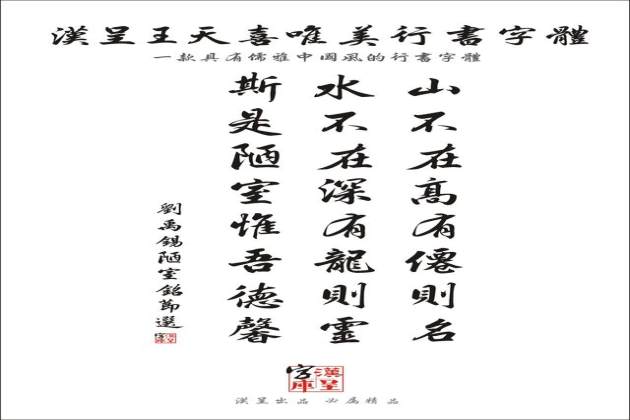 漢呈王天喜唯美行書字體
一款具有儒雅中國風的行書字體
山不在高有僊則名
水不在深有龍則靈
斯是陋室惟吾德馨
劉禹錫陋室銘節選
漢呈字庫
漢呈出品 必屬精品